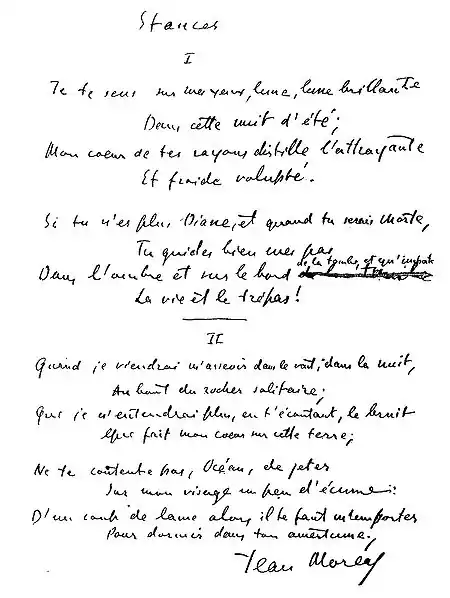 Stances
I
Je te sens sur mes yeux, lune, lune brillante
Dans cette nuit d'été;
Mon coeur de tes rayons distille l'attrayante
Et froide volupté.
Si tu n'es plus Diane, et quand tu serais morte,
Tu guides bien mes pas
Dans l'ombre et sur le bord de la tombe, et qu'importe
La vie et le trépas!
II
Quand je viendrai m'asseoir dans le vent, dans la nuit,
Au bout du rocher solitaire;
Que je n'entendrai plus, en t'écoutant, le bruit
Que fait mon coeur sur cette terre;
Ne te contente pas, Océan, de jeter
Sur mon visage un peu d'écume:
D'un coup de lame alors il te faut m'emporter
Pour dormir dans ton amertume,
Jean Moréas